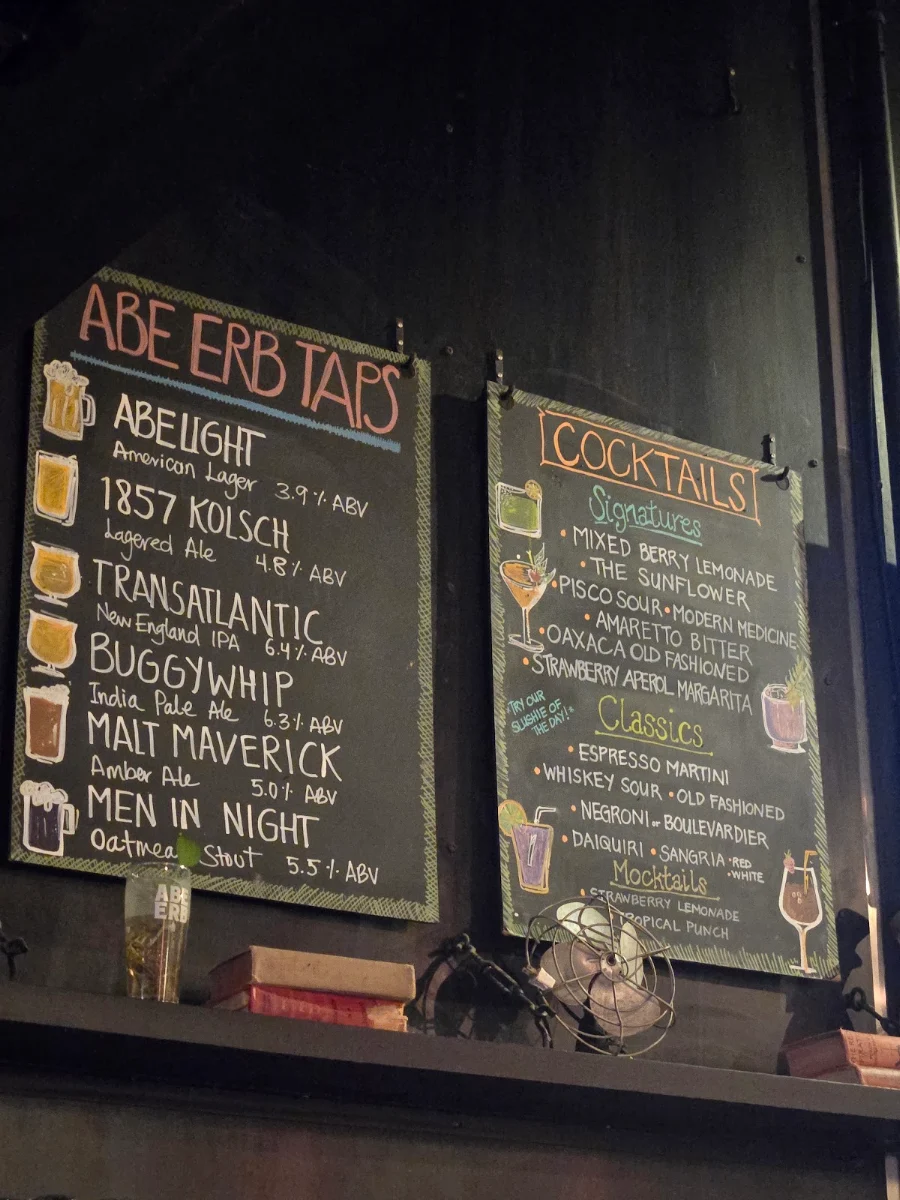 ABE ERB TAPS
ABELIGHT
American Lager 3.9% ABV
1857 KOLSCH
Lagered Ale 4.8% ABV
TRANSATLANTIC
New England IPA 6.4% ABV
BUGGYWHIP
India Pale Ale 6.3% ABV
MALT MAVERICK
Amber Ale 5.0% ABV
MEN IN NIGHT
Oatmeal Stout 5.5% ABV
ABE
ERB
COCKTAILS
Signatures
• MIXED BERRY LEMONADE
• THE SUNFLOWER
• PISCO SOUR • MODERN MEDICINE
• AMARETTO BITTER
• OAXACA OLD FASHIONED
• STRAWBERRY APEROL MARGARITA
*TRY OUR
SLUSHIE OF
THE DAY!*
Classics
• ESPRESSO MARTINI
• WHISKEY SOUR • OLD FASHIONED
• NEGRONI or BOULEVARDIER
• DAIQUIRI • SANGRIA •RED
•WHITE
Mocktails
• STRAWBERRY LEMONADE
TROPICAL PUNCH